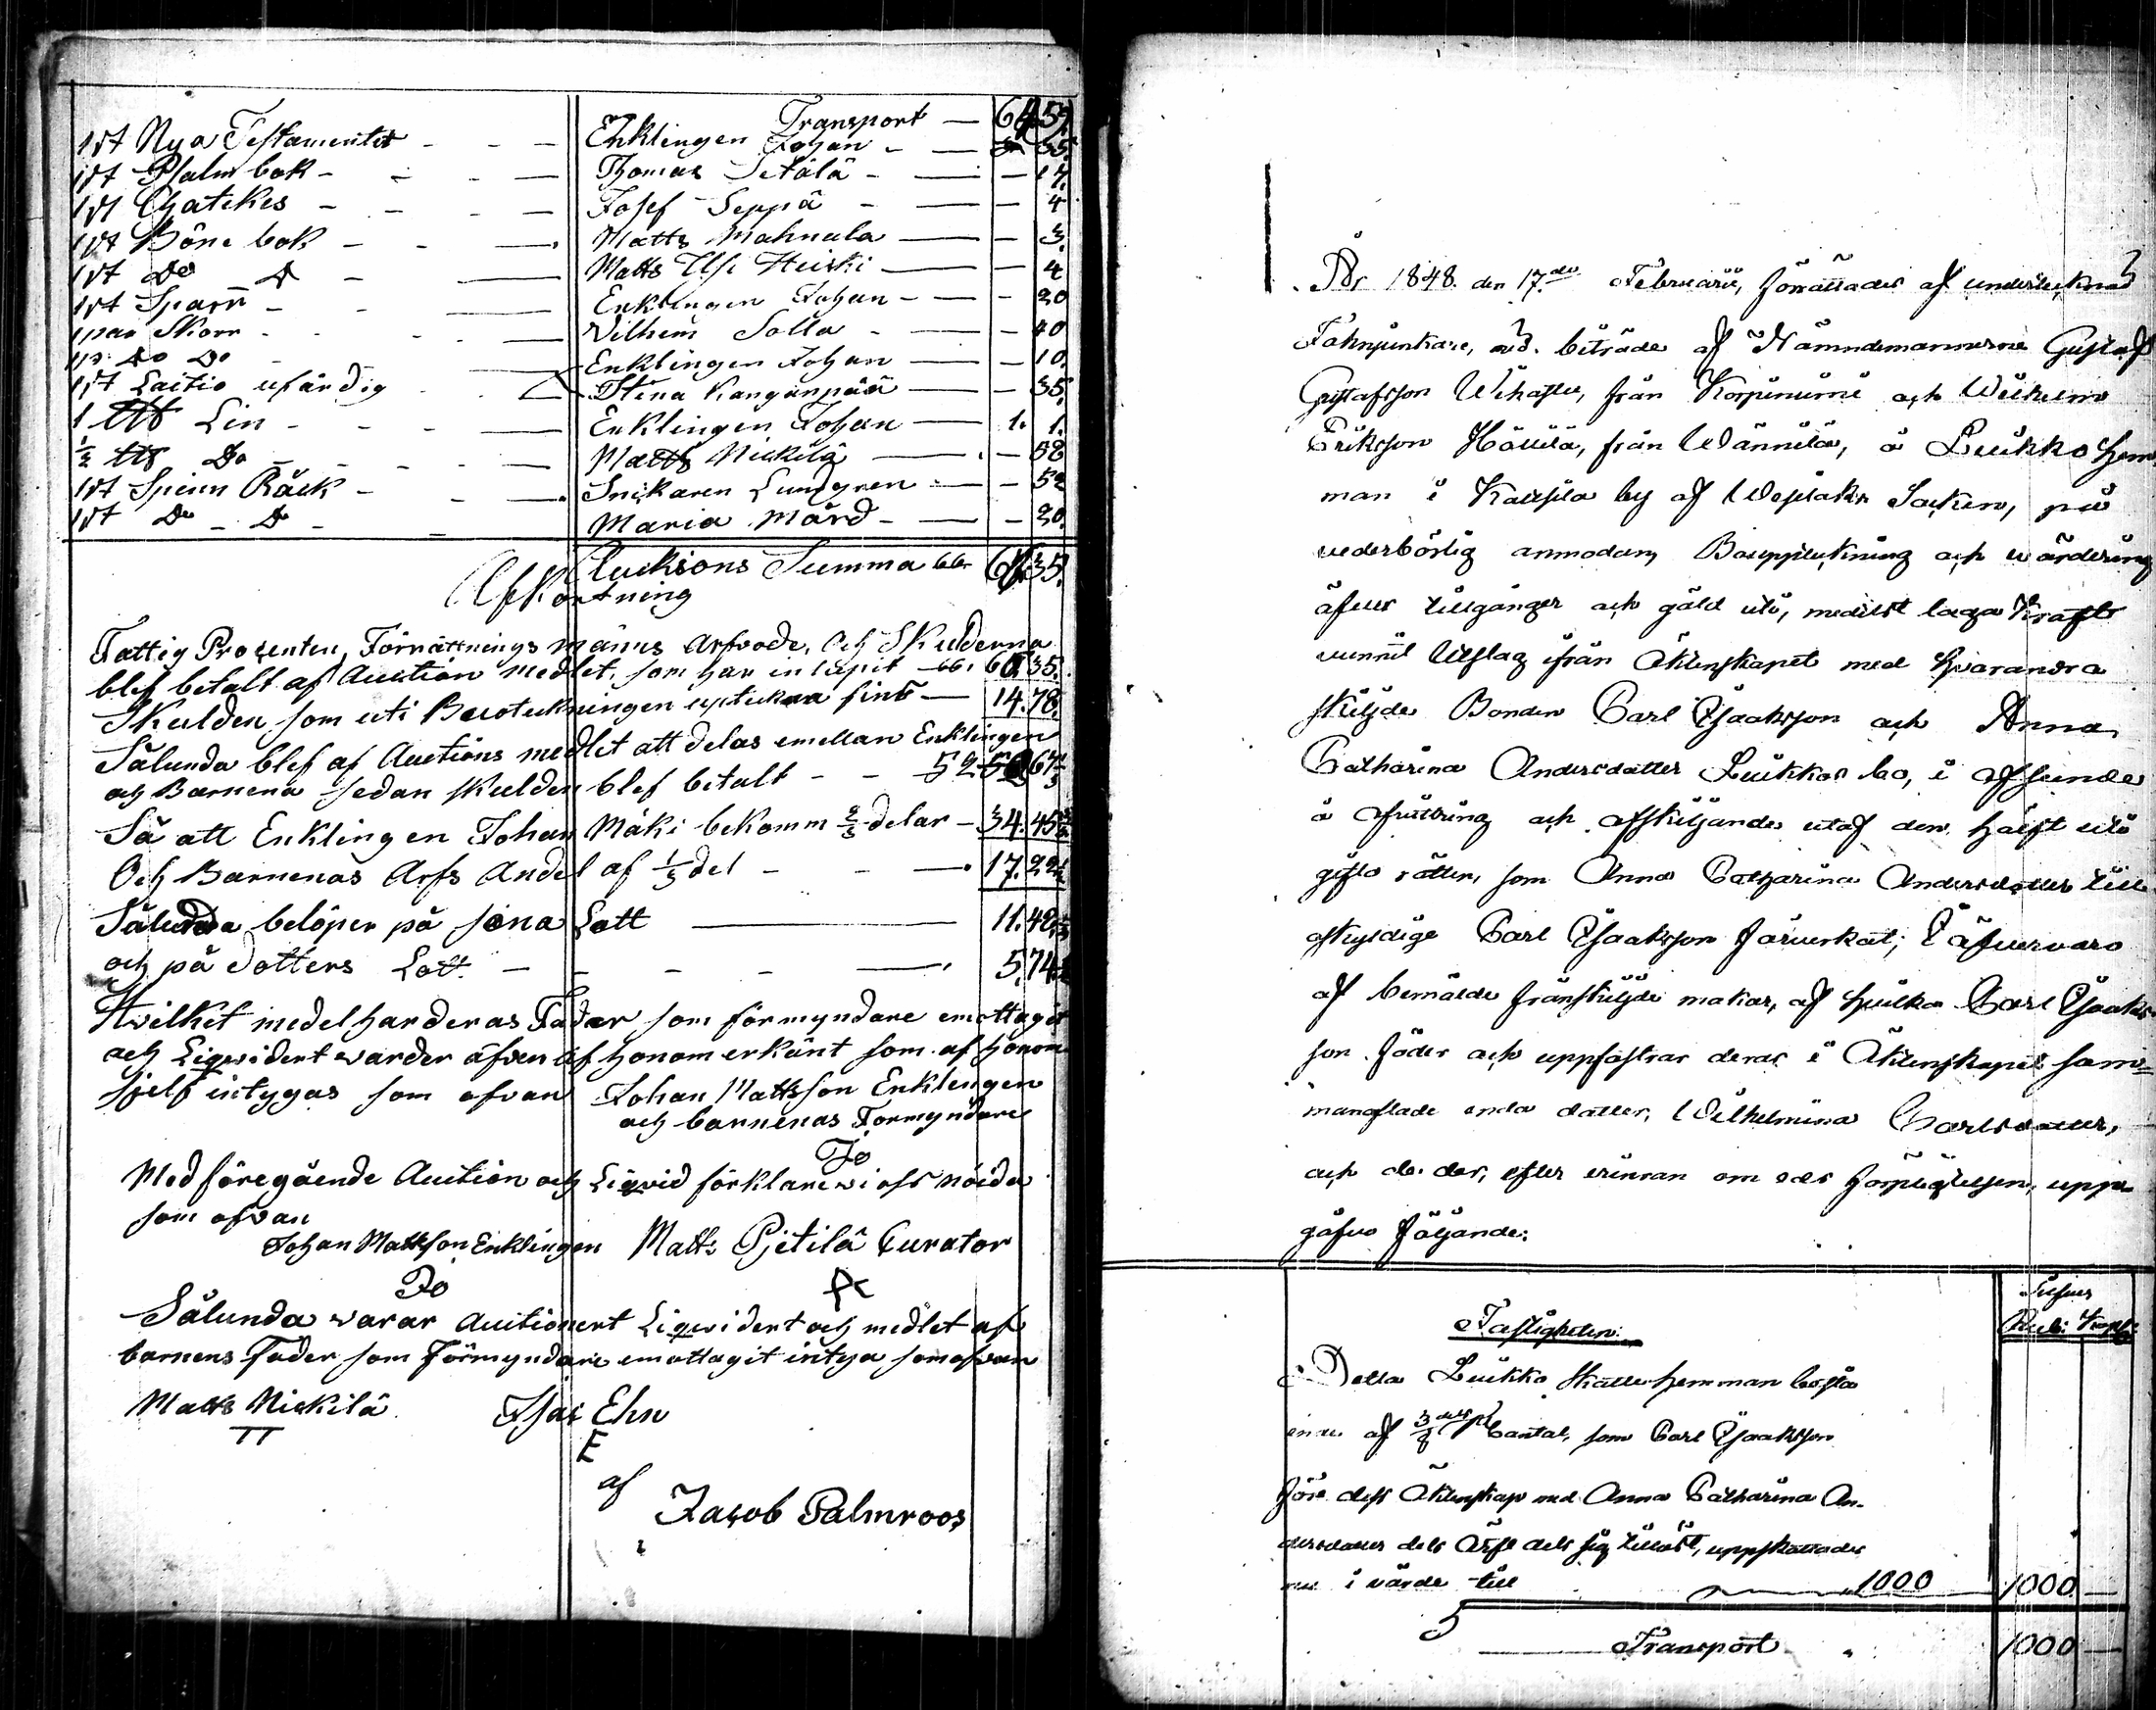 Transport — 64 59
1st Nya Testamentet - - — Enklingen Johan - — 35.
1st Psalm bok - - - — Thomas Setälä - — - 17.
1st Chatekes - - - — Josef Seppä - — - 4
1st Böne bok - - — Matts Mahnala — - 3.
1st Do Do - — Matts Ylsi Heiski — - 4
1st Sparr - - — Enklingen Johan - — - 20
1 par Skorr - - — Vilhem Solla - — - 40
1 p: Do Do - — Enklingen Johan — - 10.
1st Laitio ufärdig - - Stina Kanganpää — - 35.
1 ℔ Lin - - - — Enklingen Johan — 1. 1.
½ ℔ Do - - - — Matts Nickilä — - 58
1st Spinn Råck - - — Snickaren Lundgren — - 52
1st Do - Do - - Maria Mård - — - 20.
Aucksions Summa 35.
Afkortning
Fattig Procenten, Förrättnings männs Arfvode, och Skulderna
blef betalt af Auction medlet, som har inlupit 35.
Skulden som uti Bouoteckningen upteknа fins — 14.78.
Sålunda blef af Auctions medlet att delas emellan Enklingen
och Barnena sedan skulden blef betalt - -
Så att Enklingen Johan Mäki bekomm ⅔ delar — 34.45
Och Barnenas Arfs Andel af ⅓ del - - — 17.22
Sålunda belöper på söna Lott — 11.48
och på dotters Lott - - - - — 5.74
Hvilket medel har deras Fader som förmyndare emottagit
och Liqvidert warder äfven af honom erkänt som af honom
sjelf intygas som ofvan Johan Mattsson Enklengen
och barnenas Formyndare
Jo
Med föregående Auction och Liqvid förklare wi oss nöida
som ofvan
Johan Mattsson Enklingen Matts Pjetilä Curator
Jo
Sålunda warar Auctionert Liqwidert och medlet af
barnens Fader som Förmyndare emottagit intya som ofvan
Matts Nickilä Isac Ehn
E
af
Jacob Palmroos
År 1848 den 17de Februarii, förrättades af undertecknad
Fahnjunkare, med biträde af Nämndemännerne Gustaf
Gustafsson från och Wilhelm
Eriksson från Wännilä, å Luikko hem
man i by af Socken, på
vederbörlig anmodan, Bouppteckning och wärdering
öfver tillgångar och gäld uti, medelst laga kraft
vunnit Utslag ifrån Äktenskapet med hvarandra
skiljde Bonden Carl Isaaksson och Anna
Catharina Andersdotter Luikkos bo, i afseende
å utbrytning och afskiljande utaf den hälft uti
gifto rätten, som Anna Catharina Andersdotter till
oskyldige Carl Isaaksson förverkat; I öfvervaro
af bemälde frånskiljde makar, af hvilka Carl Isaaks
son föder och uppfostrar deras i Äktenskapet sam=
manaflade enda dotter, Wilhelmina Carlsdotter,
och de der, efter erinran om eds förpligtelsen, upp
gåfvo följande:
Silfver
Rub: Kop:
Fastigheten:
Detta Luikko Skatte hemman bestå
ende af ⅜ dels mantal, som Carl Isaaksson
före dess Äktenskap med Anna Catharina An-
dersdotter dels ärft dels sig tillöst, uppskattades
nu i värde till — 1000 1000 —
Transport 1000 —